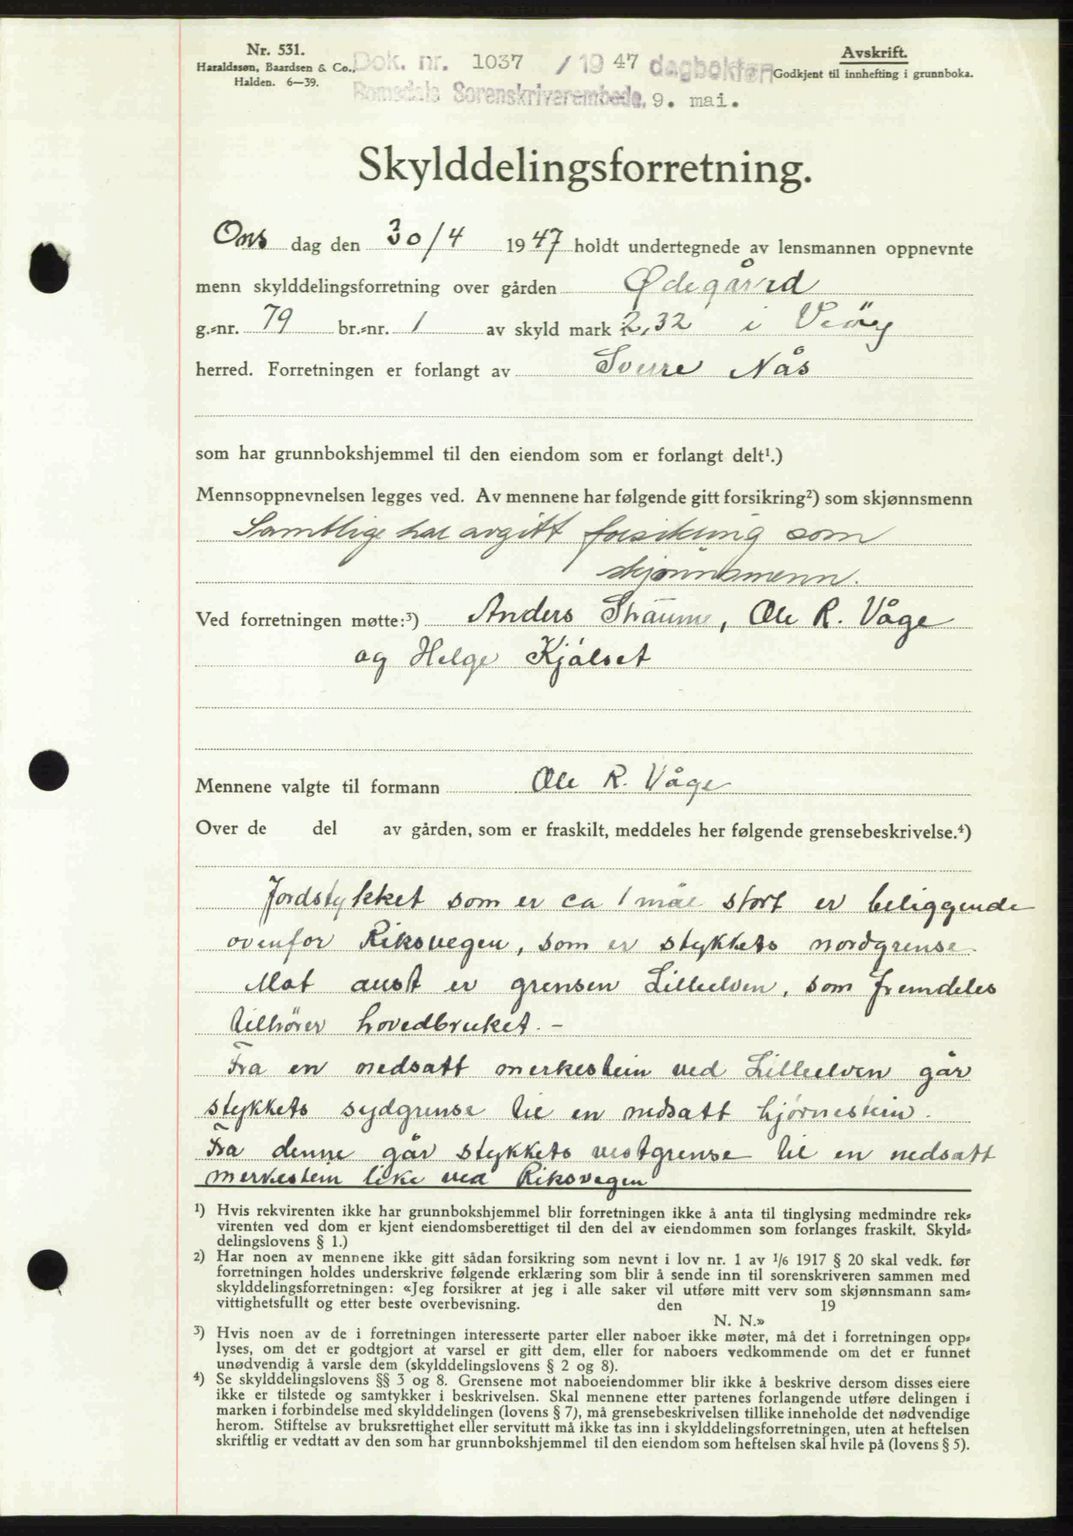 Nr. 531.
Haraldssøn, Baardsen & Co.,
Halden. 6—39.
Dok. nr. 1037 / 1947 dagboken
Romsdals Sorenskriverembede, 9. mai.
Avskrift.
Godkjent til innhefting i grunnboka.
Skylddelingsforretning.
Ons dag den 30/4 1947 holdt undertegnede av lensmannen oppnevnte
menn skylddelingsforretning over gården Ødegård
g.=nr. 79 br.=nr. 1 av skyld mark 2,32 i Veøy
herred. Forretningen er forlangt av Sverre Nås
som har grunnbokshjemmel til den eiendom som er forlangt delt¹.)
Mennsoppnevnelsen legges ved. Av mennene har følgende gitt forsikring²) som skjønnsmenn
Samtlige har avgitt forsikring som
skjønnsmenn.
Ved forretningen møtte:³) Anders Straume, Ole R. Våge
og Helge Kjølset
Mennene valgte til formann Ole R. Våge
Over de del av gården, som er fraskilt, meddeles her følgende grensebeskrivelse.⁴)
Jordstykket som er ca 1 mål stort er beliggende
ovenfor Riksvegen, som er stykkets nordgrense.
Mot aust er grensen Lilleelven, som fremdeles
tilhører hovedbruket. –
Fra en nedsatt merkestein ved Lilleelven går
stykkets sydgrense til en nedsatt hjørnestein.
Fra denne går stykkets vestgrense til en nedsatt
merkestein like ved Riksvegen
¹) Hvis rekvirenten ikke har grunnbokshjemmel blir forretningen ikke å anta til tinglysing medmindre rek=
virenten ved dom er kjent eiendomsberettiget til den del av eiendommen som forlanges fraskilt. Skyld=
delingslovens § 1.)
²) Har noen av mennene ikke gitt sådan forsikring som nevnt i lov nr. 1 av 1/6 1917 § 20 skal vedk. før
forretningen holdes underskrive følgende erklæring som blir å sende inn til sorenskriveren sammen med
skylddelingsforretningen: «Jeg forsikrer at jeg i alle saker vil utføre mitt verv som skjønnsmann sam=
vittighetsfullt og etter beste overbevisning. den 19
N. N.»
³) Hvis noen av de i forretningen interesserte parter eller naboer ikke møter, må det i forretningen opp=
lyses, om det er godtgjort at varsel er gitt dem, eller for naboers vedkommende om det er funnet
unødvendig å varsle dem (skylddelingslovens § 2 og 8).
⁴) Se skylddelingslovens §§ 3 og 8. Grensene mot naboeiendommer blir ikke å beskrive dersom disses eiere
ikke er tilstede og samtykker i beskrivelsen. Skal mennene etter partenes forlangende utføre delingen i
marken i forbindelse med skylddelingen (lovens § 7), må grensebeskrivelsen tillike inneholde det nødvendige
herom. Stiftelse av bruksrettighet eller servitutt må ikke tas inn i skylddelingsforretningen, uten at heftelsen
skriftlig er vedtatt av den som har grunnbokshjemmel til den eiendom som heftelsen skal hvile på (lovens § 5).